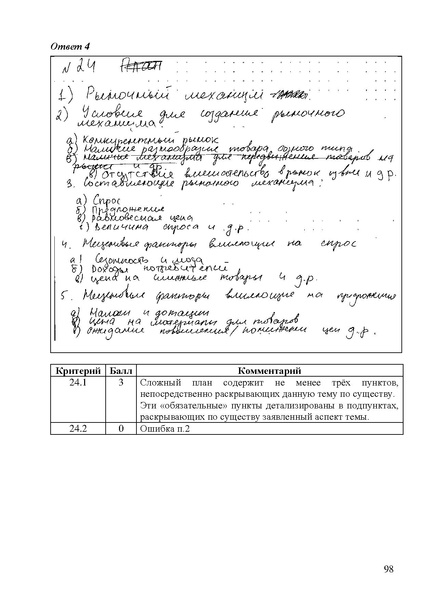 Ответ 4
N 24 План
1) Рыночный механизм
2) Условия для создания рыночного
механизма:
а) Конкурентный рынок
б) Наличие разнообразия товара одного типа.
в) наличие механизма для передвижения товаров на
рынке и др.
в) отсутствие вмешательства в рынок извне и д.р.
3. Составляющие рыночного механизма:
а) Спрос
б) Предложение
в) Равновесная цена
г) Величина спроса и д.р.
4. Неценовые факторы влияющие на спрос
а) Сезонность и мода
б) Доходы потребителей
в) цена на смежные товары и д.р.
5. Неценовые факторы влияющие на предложение
а) Налоги и дотации
б) цена на материалы для товаров
в) ожидание повышения/понижения цен д.р.
Критерий Балл Комментарий
24.1 3 Сложный план содержит не менее трёх пунктов,
непосредственно раскрывающих данную тему по существу.
Эти «обязательные» пункты детализированы в подпунктах,
раскрывающих по существу заявленный аспект темы.
24.2 0 Ошибка п.2
98